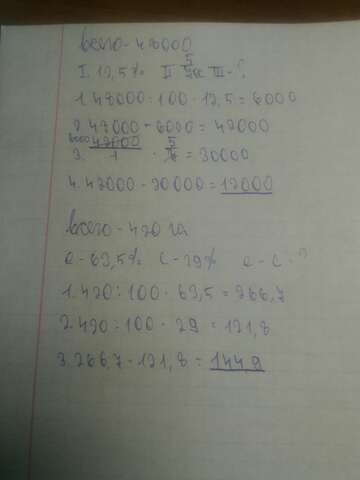 Всего - 48000
I. 12,5% II 5/7 ост III - ?
1. 48000 : 100 · 12,5 = 6000
2. 48000 - 6000 = 42000
3. 42000/1 · 5/7 = 30000
4. 42000 - 30000 = 12000
Всего - 420 га
О - 63,5% С - 29% О - С - ?
1. 420 : 100 · 63,5 = 266,7
2. 420 : 100 · 29 = 121,8
3. 266,7 - 121,8 = 144,9